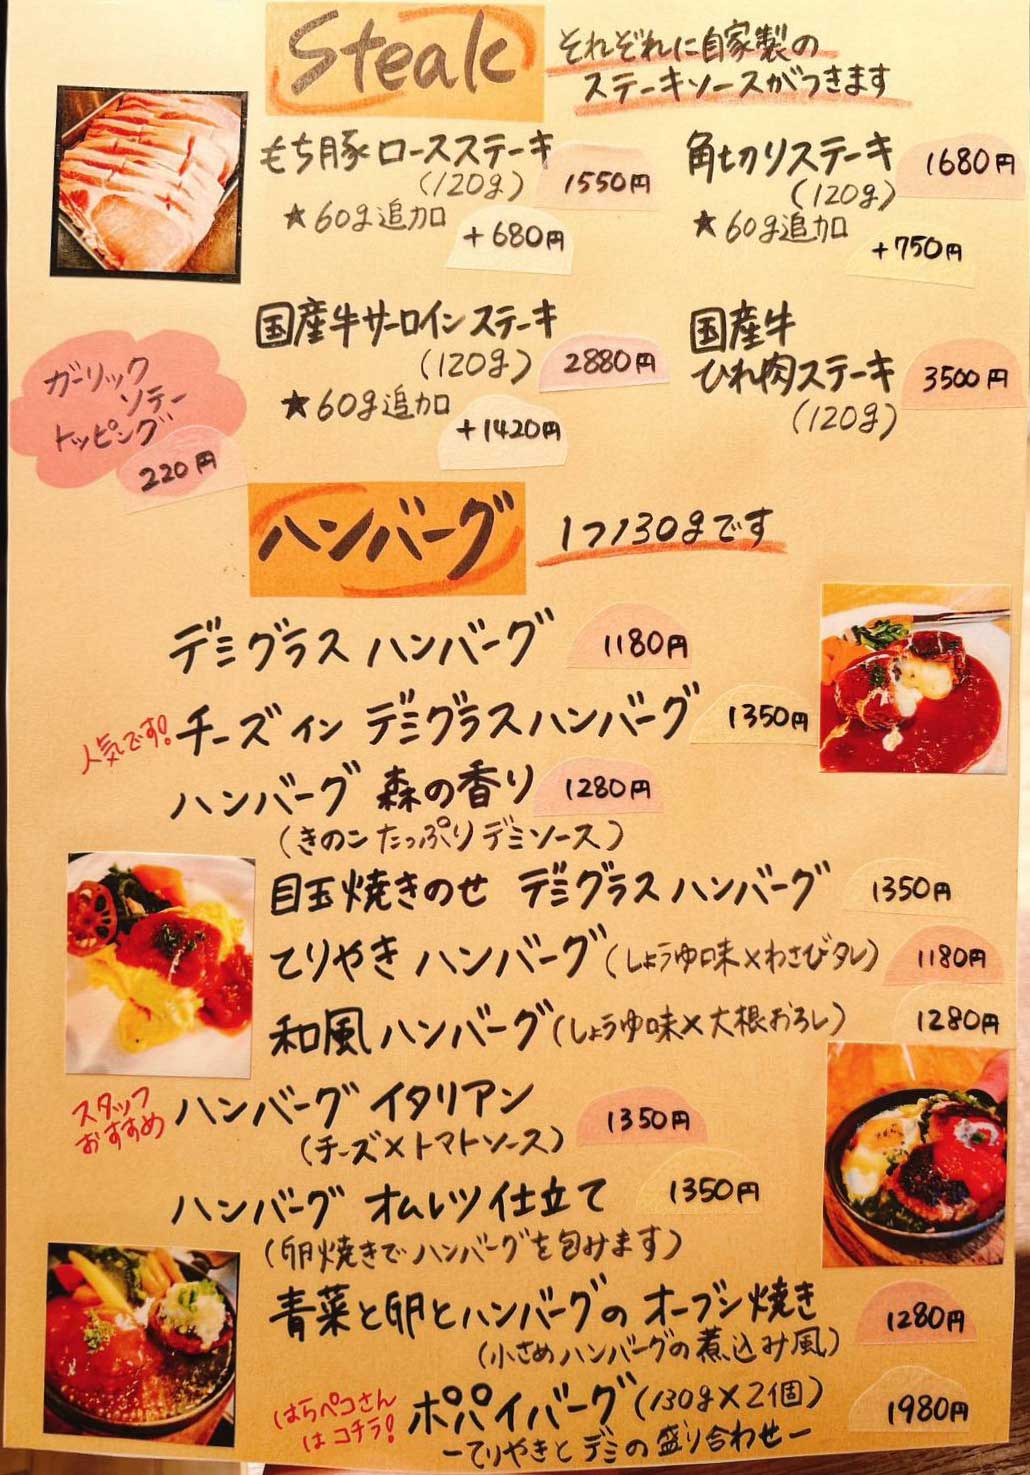 Steak
それぞれに自家製の
ステーキソースがつきます
もち豚ロースステーキ
(120g) 1550円
★60g追加
+680円
角切りステーキ 1680円
(120g)
★60g追加
+750円
国産牛サーロインステーキ
(120g) 2880円
★60g追加
+1420円
国産牛
ひれ肉ステーキ 3500円
(120g)
ガーリック
ソテー
トッピング
220円
ハンバーグ 1つ130gです
デミグラス ハンバーグ 1180円
人気です! チーズイン デミグラスハンバーグ 1350円
ハンバーグ 森の香り 1280円
(きのこたっぷりデミソース)
目玉焼きのせ デミグラスハンバーグ 1350円
てりやき ハンバーグ(しょうゆ味×わさびタレ) 1180円
和風ハンバーグ(しょうゆ味×大根おろし) 1280円
スタッフ
おすすめ
ハンバーグ イタリアン 1350円
(チーズ×トマトソース)
ハンバーグ オムレツ仕立て 1350円
(卵焼きでハンバーグを包みます)
青菜と卵とハンバーグの オーブン焼き 1280円
(小さめハンバーグの煮込み風)
はらペコさん
はコチラ!
ポパイバーグ(130g×2個) 1980円
ーてりやきとデミの盛り合わせー